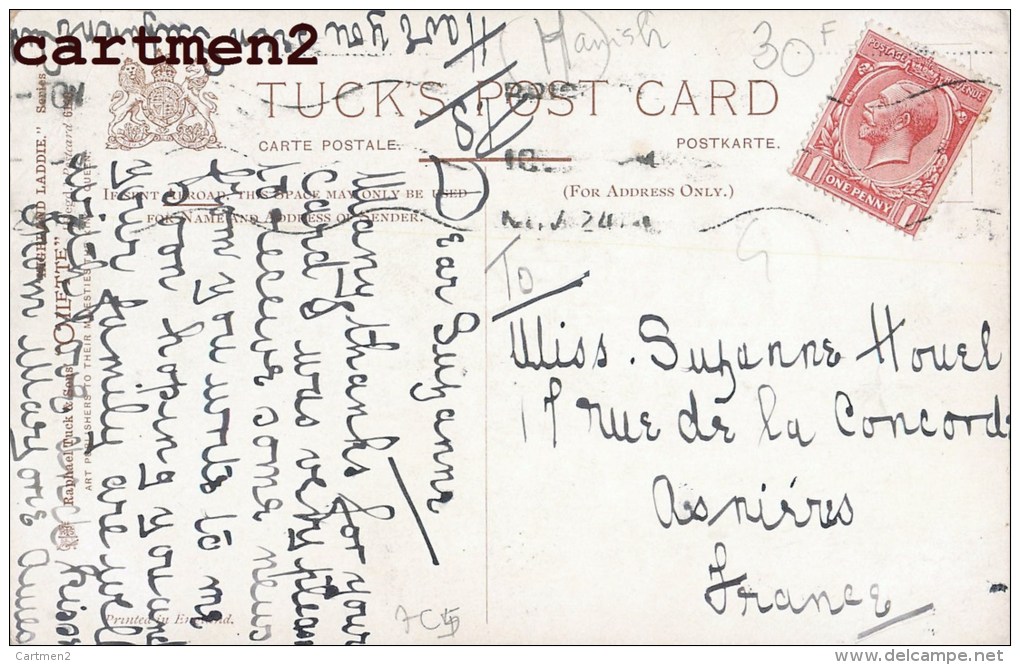 cartmen2
(Hamish
30F
TUCK'S POST CARD
CARTE POSTALE.
POSTKARTE.
IF SENT ABROAD, THIS SPACE MAY ONLY BE USED
FOR NAME AND ADDRESS OF SENDER.
(FOR ADDRESS ONLY.)
POSTAGE REVENUE
1 ONE PENNY 1
24
To
Miss. Suzanne Houel
17 rue de la Concorde
Asnières
France
Dear Suzanne
Many thanks for your
Card I was very pleased
to receive some news
from you write to me
soon hoping you and
your family are well
with
from
kisses
P.S
Have you
Raphael Tuck & Sons' "OILETTE"
"HIGHLAND LADDIE." Series
Postcard
ART PUBLISHERS TO THEIR MAJESTIES THE KING AND QUEEN
Printed in England.
Cartmen2
www.delcampe.net